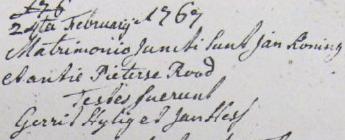 176
24ta February 1767
Matrimonio Juncti Sunt Jan Koning
et antie Pieterse Rood
Testes fuerunt
Gerrit Hylig et Jan Hess